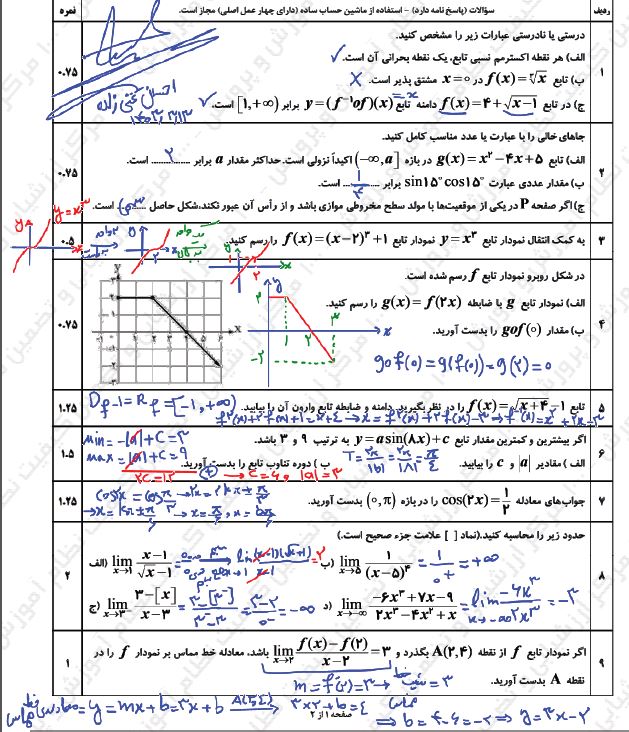 ردیف
سؤالات (پاسخ نامه دارد) – استفاده از ماشین حساب ساده (دارای چهار عمل اصلی) مجاز است.
نمره
۱
درستی یا نادرستی عبارات زیر را مشخص کنید.
الف) هر نقطه اکسترمم نسبی تابع، یک نقطه بحرانی آن است. ✓
ب) تابع f(x) = ∛x در x = ۰ مشتق پذیر است. X
ج) در تابع f(x) = ۴ + √(x−۱) دامنه تابع y = (f⁻¹of)(x) برابر [۱,+∞) است. ✓
= x
۰.۷۵
۲
جاهای خالی را با عبارت یا عدد مناسب کامل کنید.
الف) تابع g(x) = x² − ۴x + ۵ در بازه (−∞,a] اکیداً نزولی است. حداکثر مقدار a برابر ....۲.... است.
ب) مقدار عددی عبارت sin۱۵° cos۱۵° برابر ....۱/۴.... است.
ج) اگر صفحه P در یکی از موقعیت‌ها با مولد سطح مخروطی موازی باشد و از رأس آن عبور نکند، شکل حاصل ........ است.
۰.۷۵
۳
به کمک انتقال نمودار تابع y = x³ نمودار تابع f(x) = (x−۲)³ + ۱ را رسم کنید.
y = x³
۰.۵
۴
در شکل روبرو نمودار تابع f رسم شده است.
الف) نمودار تابع g با ضابطه g(x) = f(۲x) را رسم کنید.
ب) مقدار gof(۰) را بدست آورید.
gof(0) = g(f(0)) = g(۲) = 0
۰.۷۵
۵
تابع f(x) = √(x+۴) − ۱ را در نظر بگیرید. دامنه و ضابطه تابع وارون آن را بیابید.
D_f⁻¹ = R_f = [−1, +∞)
۱.۲۵
۶
اگر بیشترین و کمترین مقدار تابع y = a sin(۸x) + c به ترتیب ۹ و ۳ باشد.
الف) مقادیر |a| و c را بیابید.
ب) دوره تناوب تابع را بدست آورید.
min = −|a| + C = ۳
max = |a| + C = ۹
2C = ۱۲ (+) → C = ۶, |a| = ۳
T = ۲π/|b| = ۲π/|۸| = π/۴
۱.۵
۷
جواب‌های معادله cos(۲x) = ۱/۲ را در بازه (۰,π) بدست آورید.
cos ۲x = cos π/۳ → ۲x = ۲kπ ± π/۳
→ x = kπ ± π/۶ → x = π/۶, x = ۵π/۶
۱.۲۵
۸
حدود زیر را محاسبه کنید.(نماد [ ] علامت جزء صحیح است.)
الف) lim x→۱ (x−۱)/(√x−۱) = lim x→1 (x−1)(√x+1)/(x−1) = ۲
ب) lim x→۵ ۱/(x−۵)⁴ = 1/0⁺ = +∞
ج) lim x→۳⁻ (۳−[x])/(x−۳) = (۳−[۳⁻])/(۳⁻−۳) = (۳−۲)/0⁻ = −∞
د) lim x→−∞ (−۶x³+۷x−۹)/(۲x³−۴x²+x) = lim x→−∞ −۶x³/۲x³ = −۳
۲
۹
اگر نمودار تابع f از نقطه A(۲,۴) بگذرد و lim x→۲ (f(x)−f(۲))/(x−۲) = ۳ باشد، معادله خط مماس بر نمودار f را در
نقطه A بدست آورید.
m = f′(۲) = ۳ → شیب خط مماس = ۳
۱
صفحه ۱ از ۲
y = mx + b = ۳x + b A(۲,۴) → ۳×۲ + b = ۴
⇒ b = ۴−۶ = −۲ ⇒ y = ۳x − ۲